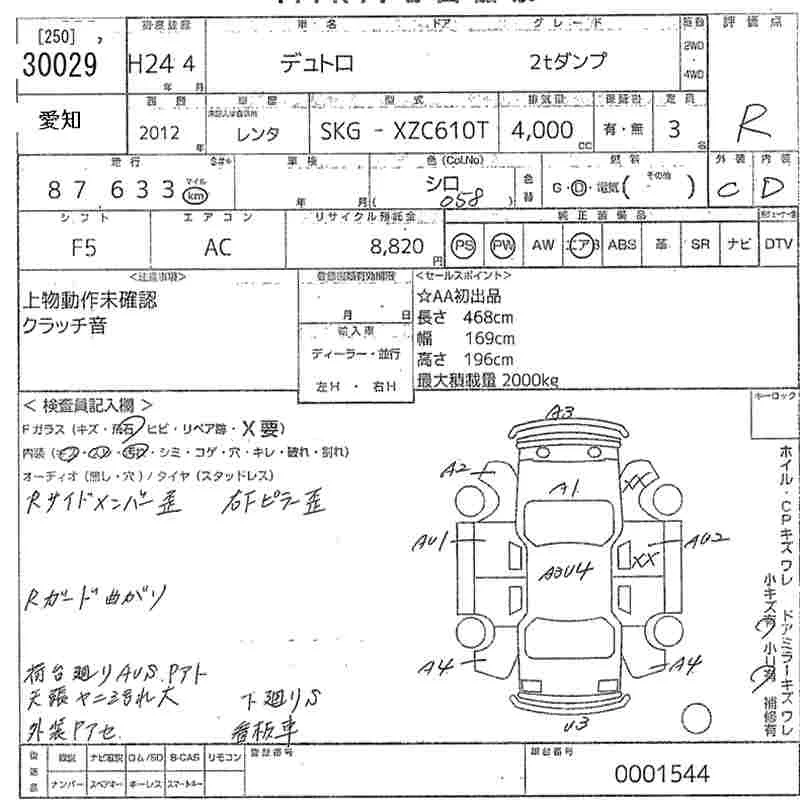 [250]
30029
愛知
初度登録
H24 4
年 月
車名
ドア
グレード
デュトロ
2tダンプ
2WD
4WD
評価点
R
2012
年
車歴
レンタ
型式
SKG - XZC610T
排気量
4,000
CC
有・無
定員
3
名
走行
87 633
マイル
km
車検
年 月
色(Col.No)
シロ
058
色替
燃料
G・D・電気(その他 )
外装
C
内装
D
シフト
F5
エアコン
AC
リサイクル預託金
8,820
円
純正装備品
PS PW AW エアB ABS 革 SR ナビ DTV
<注意事項>
上物動作未確認
クラッチ音
登録書類有効期限
月 日
輸入車
ディーラー・並行
左H ・ 右H
<セールスポイント>
☆AA初出品
長さ 468cm
幅 169cm
高さ 196cm
最大積載量 2000kg
<検査員記入欄>
Fガラス(キズ・飛石・ヒビ・リペア跡・X要)
内装(キズ・スレ・汚れ・シミ・コゲ・穴・キレ・破れ・割れ)
オーディオ(無し・穴)/タイヤ(スタッドレス)
Rサイドメンバー歪 右Fピラー歪
Rガード曲がり
荷台廻りAUS.Pアト
天張ヤニヨゴれ大 下廻りS
外装Pアセ 看板車
キーロック
A3
A2
A1
XX
AU1
AU2
XX
A3U4
A4
A4
U3
ホイル・CPキズワレ ドアミラーキズワレ
小キズ有 小U有 補修有
後送品
取説 ナビ取説 ロム/SD B-CAS リモコン
ナンバー スペアキー キーレス スマートキー
登録番号
車台番号
0001544